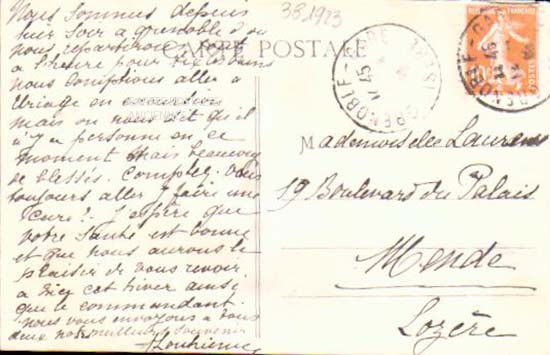 38.1923
CARTE POSTALE
GRENOBLE-GARE
ISERE
FRANÇAISE
POSTES
Nous sommes depuis
hier soir à grenoble d'où
nous repartirons
à heure pour
nous comptions aller à
Uriage en excursion
mais on nous dit qu'il
n'y a personne en ce
moment mais beaucoup
de blessés. Comptez-vous
toujours aller y faire une
cure? J'espère que
votre santé est bonne
et que nous aurons le
plaisir de vous revoir
à Nice cet hiver ainsi
que le commandant.
nous vous envoyons à vous
deux nos meilleurs souvenirs
Mademoiselle Laurens
19 Boulevard du Palais
Mende
Lozère